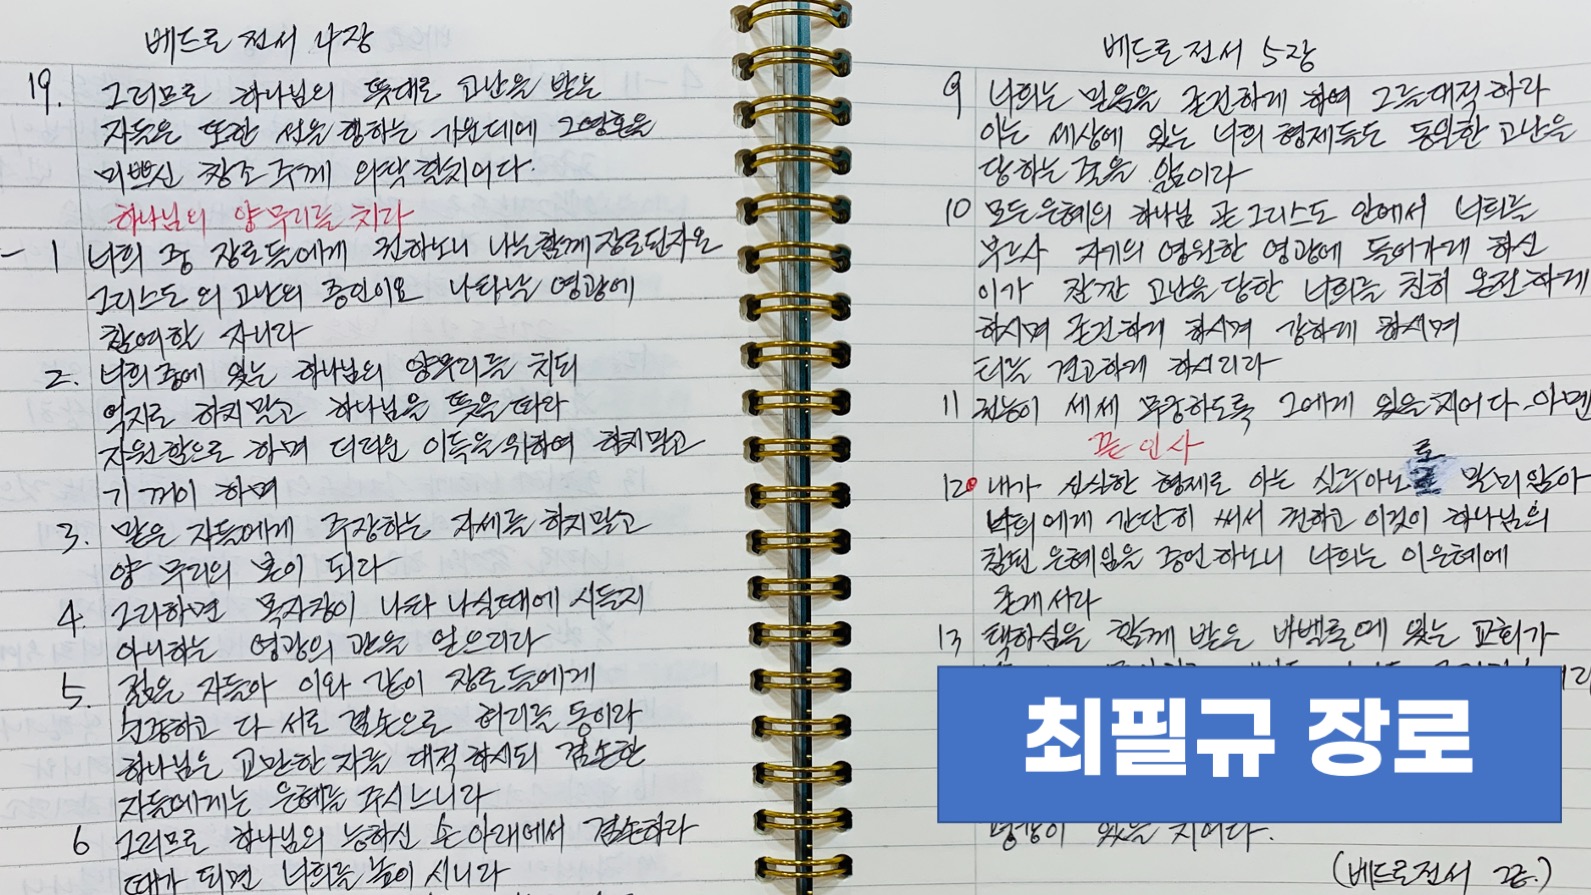 베드로전서 4장
19. 그러므로 하나님의 뜻대로 고난을 받는
자들은 또한 선을 행하는 가운데에 그영혼을
미쁘신 창조주께 의탁할지어다.
하나님의 양무리를 치라
- 1 너희 중 장로들에게 권하노니 나는함께장로된자요
그리스도의 고난의 증인이요 나타날 영광에
참여할 자니라
2. 너희중에 있는 하나님의 양무리를 치되
억지로 하지말고 하나님을 뜻을 따라
자원함으로 하며 더러운 이득을위하여 하지말고
기꺼이 하며
3. 맡은 자들에게 주장하는 자세를 하지말고
양 무리의 본이 되라
4. 그리하면 목자장이 나타나실때에 시들지
아니하는 영광의 관을 얻으리라
5. 젊은 자들아 이와 같이 장로들에게
순종하고 다 서로 겸손으로 허리를 동이라
하나님은 교만한 자를 대적하시되 겸손한
자들에게는 은혜를 주시느니라
6 그러므로 하나님의 능하신 손아래에서 겸손하라
때가 되면 너희를 높이시니라
베드로전서 5장
9 너희는 믿음을 굳건하게 하여 그를대적하라
이는 세상에 있는 너희 형제들도 동일한 고난을
당하는 줄을 앎이라
10 모든은혜의 하나님 곧 그리스도 안에서 너희를
부르사 자기의 영원한 영광에 들어가게 하신
이가 잠깐 고난을 당한 너희를 친히 온전하게
하시며 굳건하게 하시며 강하게 하시며
터를 견고하게 하시리라
11 권능이 세세 무궁하도록 그에게 있을지어다 아멘
끝인사
12 내가 신실한 형제로 아는 실루아노로 말미암아
너희에게 간단히 써서 권하고 이것이 하나님의
참된 은혜임을 증언하노니 너희는 이은혜에
굳게서라
13 택하심을 함께 받은 바벨론에 있는 교회가
최필규 장로
평강이 있을지어다.
(베드로전서 끝.)